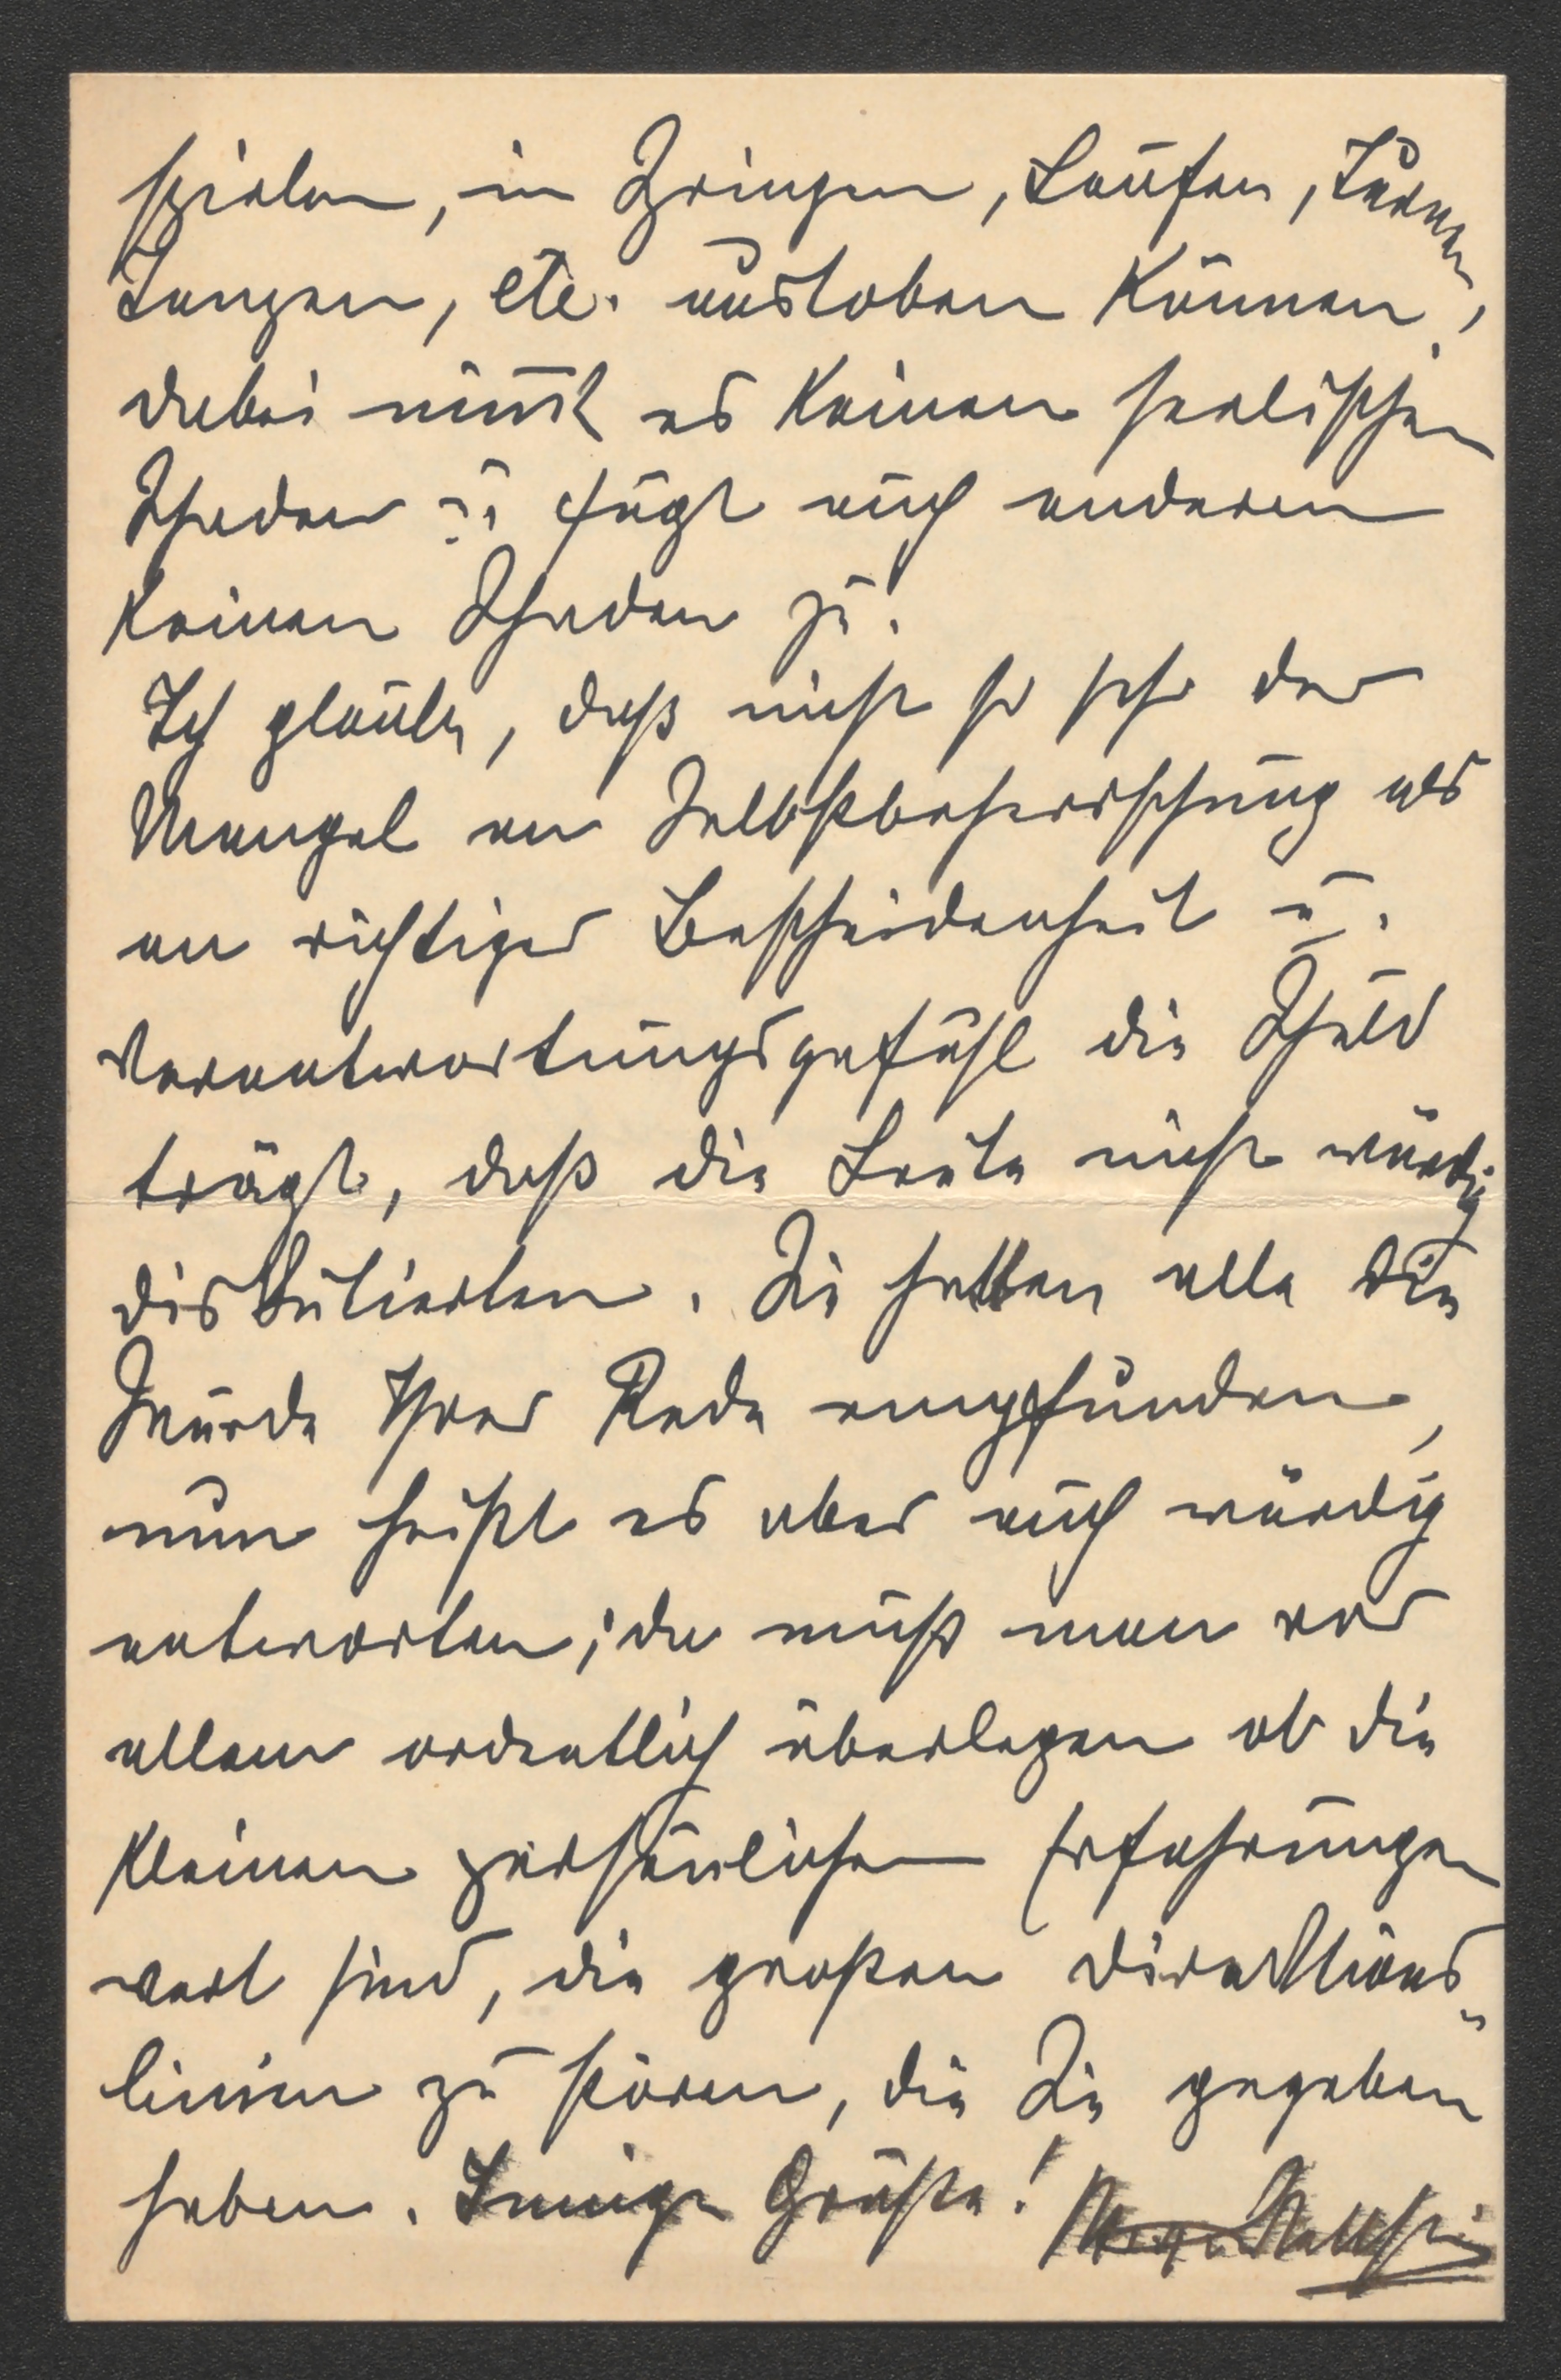 spielen, in Springen, Laufen, Turnen,
Tanzen, etc. austoben können,
dabei nimmt es keinen seelischen
Schaden u. fügt auch anderen
keinen Schaden zu.
Ich glaube, daß nicht so sehr der
Mangel an Selbstbeherrschung als
an richtiger Bescheidenheit u.
Verantwortungsgefühl die Schuld
trägt, daß die Leute nicht würdig
diskutierten. Sie hatten alle die
Würde Ihrer Rede empfunden,
nun heißt es aber auch würdig
antworten; da muß man vor
allem ordentlich überlegen ob die
kleinen persönlichen Erfahrungen
wert sind, die großen Direktions-
linien zu stören, die Sie gegeben
haben. Innige Grüße!